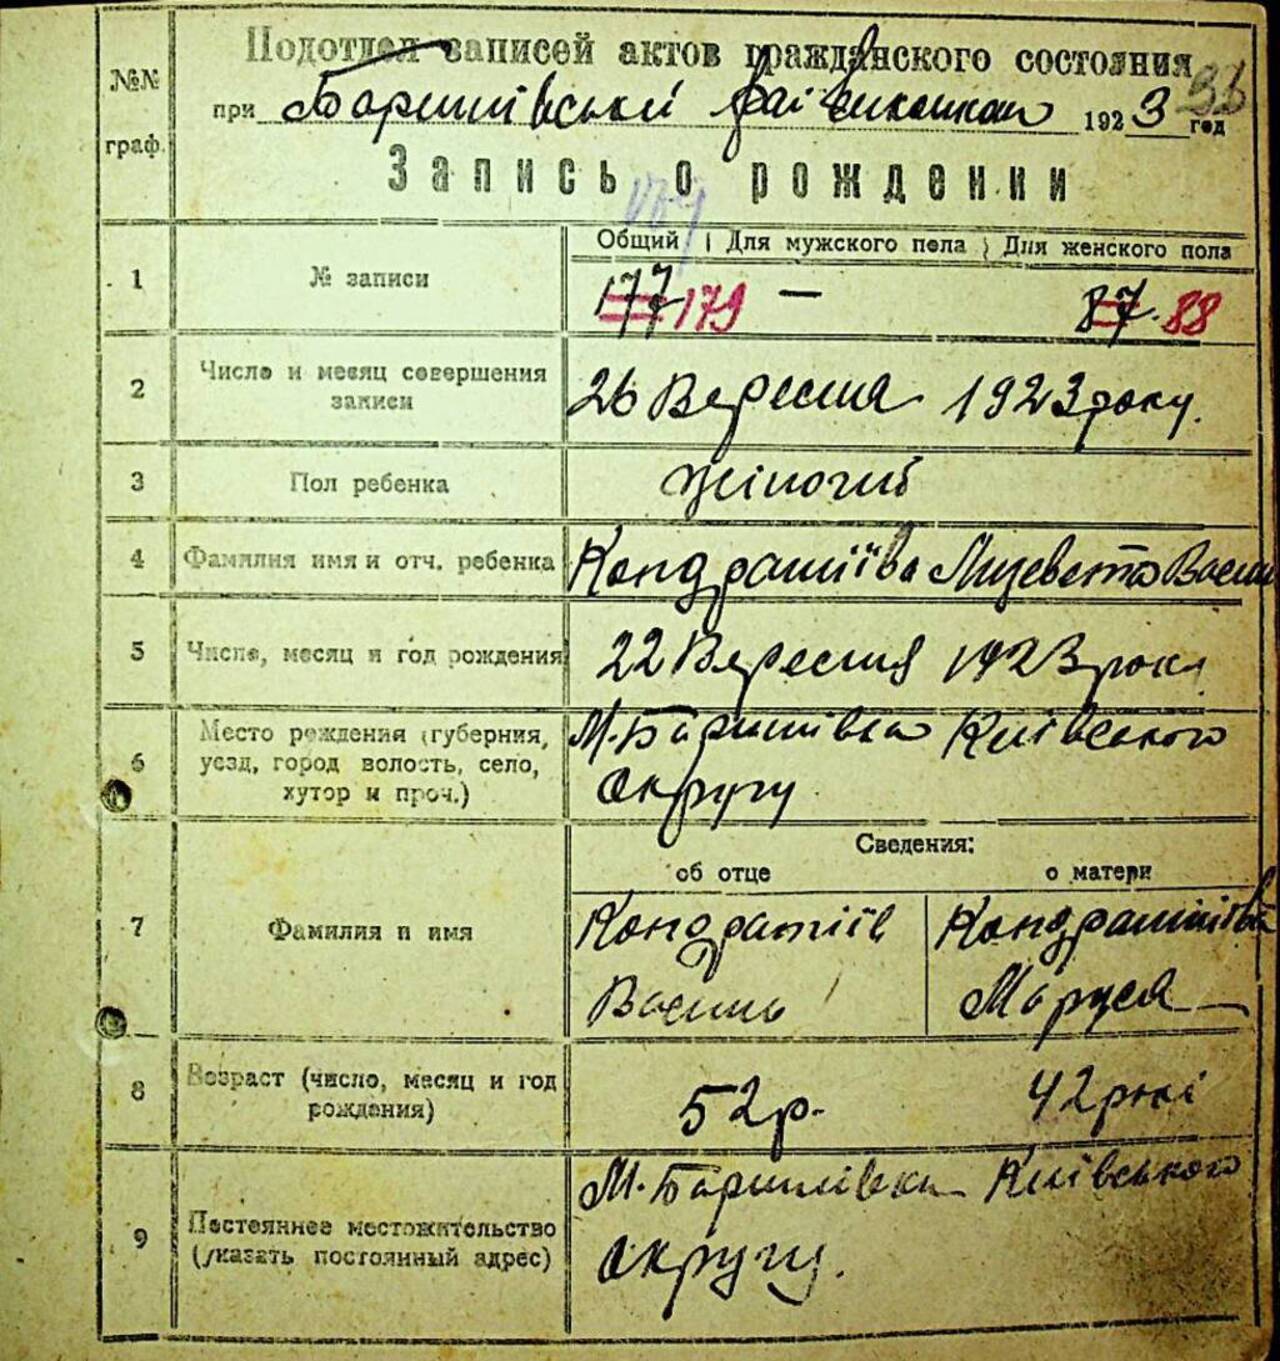 №№ граф.
Подотдел записей актов гражданского состояния
при Баришівській райвиконком 1923 год
Запись о рождении
Общий | Для мужского пола | Для женского пола
1 № записи 177 179 — 87. 88
2 Число и месяц совершения записи 26 Вересня 1923 року.
3 Пол ребенка Жіночий
4 Фамилия имя и отч. ребенка Кондратіїва Лизевета Васил
5 Число, месяц и год рождения 22 Вересня 1923 рок
6 Место рождения (губерния, уезд, город волость, село, хутор и проч.) М. Баришівка Київського
округу
Сведения:
об отце о матери
7 Фамилия и имя Кондратіїв Кондратіїва
Василь Маруся
8 Возраст (число, месяц и год рождения) 52 р. 42 рокі
9 Постоянное местожительство (указать постоянный адрес) М. Баришівка Київського
округу.